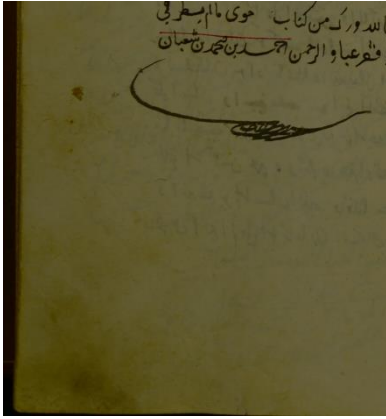 لله درك من كتاب حوى ما لم يسطر في
فقر عباد الرحمن احمد بن محمد بن شعبان